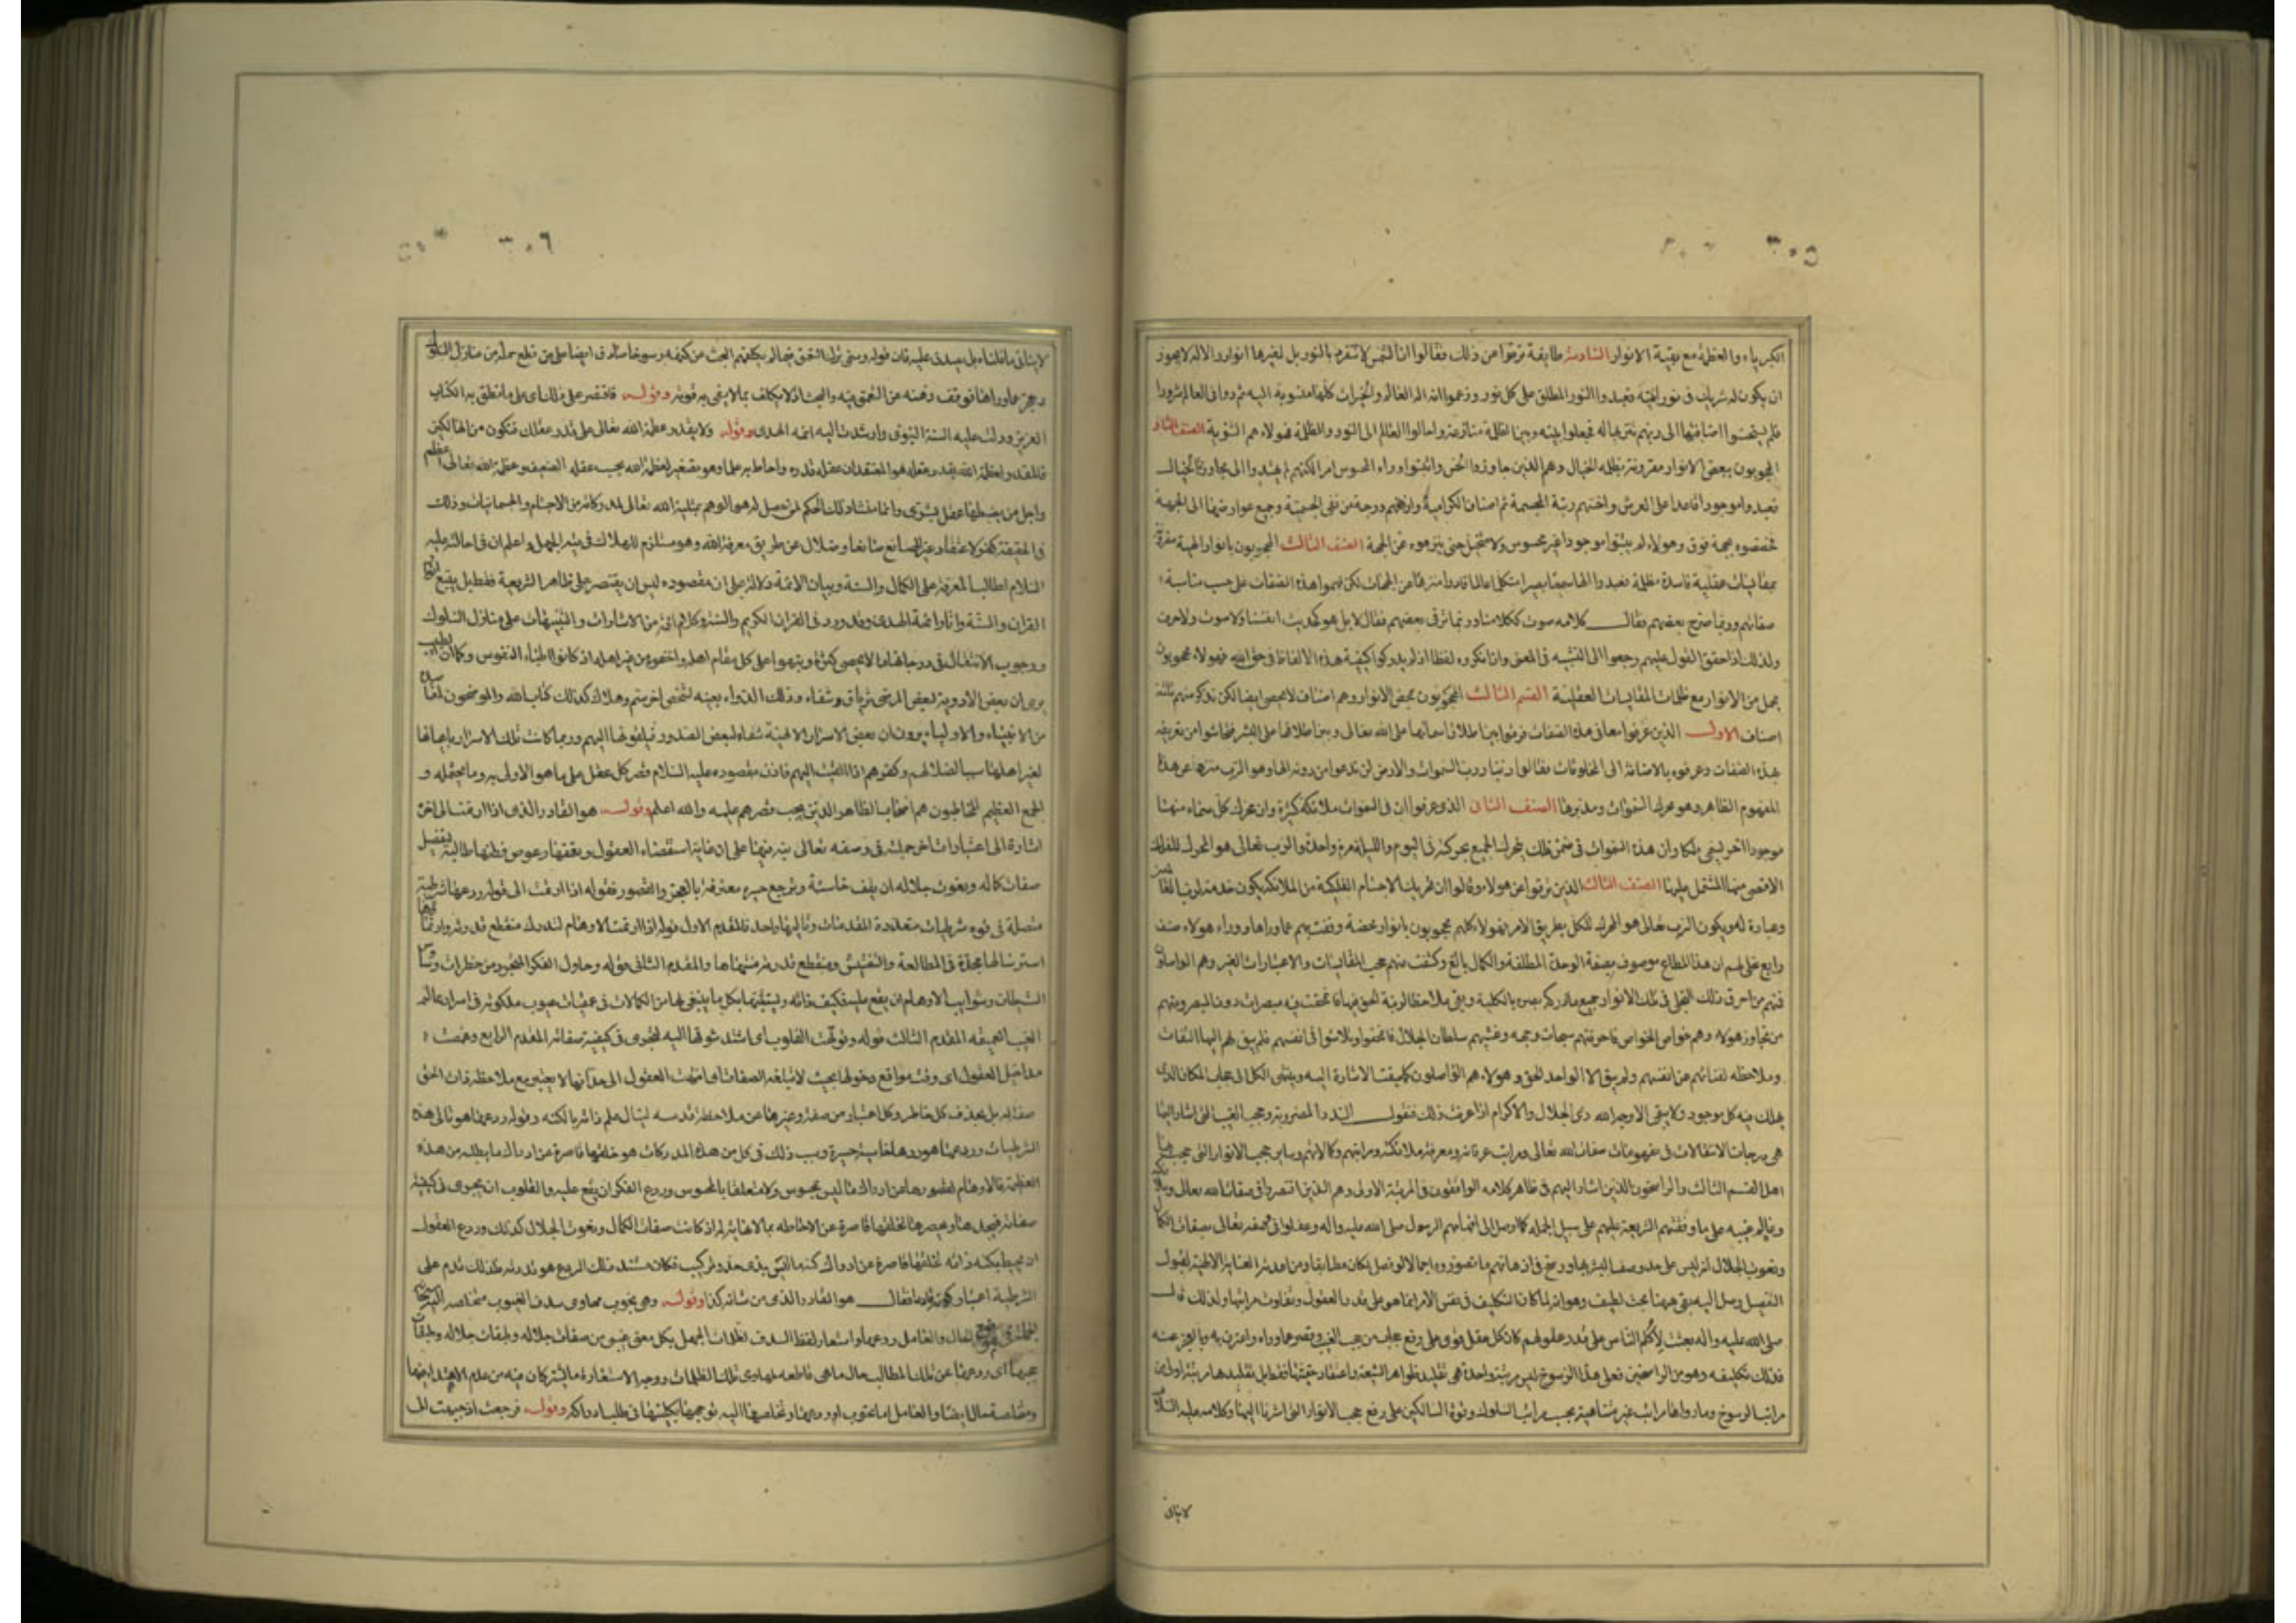 ٣٠٥
الكبرياء والعظمة مع بقية الانوار السادسة طايفة ترقوا من ذلك فقالوا ان الشمس لا تتفرد بالنور بل لغيرها انوار والاله لا يجوز
ان يكون له شريك في نورانيته فعبدوا النور المطلق على كل نور وزعموا انه اله العالم والخيرات كلها منسوبة اليه ثم راوا في العالم شرورا
فلم يستحسنوا اضافتها الى ربهم تنزيها له فجعلوا بينه وبين الظلمة منازعة واحالوا العالم الى النور والظلمة فهولاء هم الثنوية الصنف الثاني
المحجوبون ببعض الانوار مقرونة بظلمة الخيال وهم الذين جاوزوا الحس واثبتوا وراء المحسوس امرا لكنهم لم يهتدوا الى مجاوزة الخيال
فعبدوا موجودا قاعدا على العرش واخسهم رتبة المجسمة ثم اصناف الكرامية وارفعهم درجة من نفى الجسمية وجميع عوارضها الا الجهة
فخصصوه بجهة فوق وهولاء لم يثبتوا موجودا غير محسوس ولا متخيل حتى ينزهوه عن الجهة الصنف الثالث المحجوبون بانوار الهية مقرونة
بمقايسات عقلية فاسدة مظلمة فعبدوا الها سميعا بصيرا متكلما عالما قادرا منزها عن الجهات لكن فهموا هذه الصفات على حسب مناسبة
صفاتهم وربما صرح بعضهم فقال كلامه صوت ككلامنا وربما ترقى بعضهم فقال لا بل هو كحديث انفسنا ولا صوت ولا حرف
ولذلك اذا حقق القول عليهم رجعوا الى التشبيه في المعنى وان انكروه لفظا اذ لم يدركوا كيفية هذه الالفاظ في حق الله فهولاء محجوبون
بجمل من الانوار مع ظلمات المقايسات العقلية القسم الثالث المحجوبون بمحض الانوار وهم اصناف لا تحصى ايضا لكن نذكر منهم ثلثة
اصناف الاول الذين عرفوا معاني هذه الصفات وفرقوا بين اطلاق اسمائها على الله تعالى وبين اطلاقها على البشر فتحاشوا من تعريفه
بهذه الصفات وعرفوه بالاضافة الى المخلوقات فقالوا ربنا رب السموات والارض لن ندعوا من دونه الها وهو الرب منزه عن هذا
المفهوم الظاهر وهو محرك السموات ومدبرها الصنف الثاني الذي عرفوا ان في السموات ملائكة كثيرة وان محرك كل سماء منها
موجود اخر ليسمى ملكا وان هذه السموات في ضمن فلك يتحرك الجميع بحركته في اليوم والليلة مرة واحدة والرب تعالى هو المحرك للفلك
الاقصى منها المشتمل عليها الصنف الثالث الذين ترقوا عن هولاء وقالوا ان تحريك الاجسام الفلكية من الملائكة يكون خدمة لرب العالمين
وعبادة له ويكون الرب تعالى هو المحرك للكل بطريق الامر فهولاء كلهم محجوبون بانوار محضة وقفت بهم عما وراها ووراء هولاء صنف
رابع تجلى لهم ان هذا المطاع موصوف بصفة الوحدة المطلقة والكمال البالغ وكشفت عنهم حجب المقايسات والاعتبارات الغير وهم الواصلون
فمنهم من احرق ذلك التجلي في تلك الانوار جميع ما ادركه بصره بالكلية وبقى ملاحظا لرتبة الحق فيها فانمحقت فيه مبصراته دون المبصر ومنهم
من تجاوز هولاء وهم خواص الخواص فاحرقتهم سبحات وجهه وغشيهم سلطان الجلال فانمحقوا وتلاشوا في انفسهم فلم يبق لهم اليها التفات
وملاحظه لفنائهم عن انفسهم ولم يبق الا الواحد الحق وهولاء هم الواصلون كما سبقت الاشارة اليه وينتهى الكل الى حجاب الامكان الذي
يهلك فيه كل موجود ولا يبقى الا وجه الله ذي الجلال والاكرام اذا عرفت ذلك فنقول السدد المضروبة وحجب الغيب التي اشار اليها
هي درجات الانتقالات في مفهومات صفات الله تعالى ومراتب عرفانه ومعرفة ملائكته ومراتبهم وكمالاتهم وساير حجب الانوار التي حجب بها
اهل القسم الثالث والراسخون الذين اشار اليهم في ظاهر كلامه الواقفون في المرتبة الاولى وهم الذين اقتصروا في صفات الله تعالى
وعالم غيبه على ما وقفتهم الشريعة عليهم على سبيل الجملة كما اوصل الى افهامهم الرسول صلى الله عليه واله وعقلوا في وصفه تعالى بصفات الكمال
ونعوت الجلال انه ليس على حد وصف البشر بها ورسخ في اذهانهم ما تصوروه اجمالا لو فصل لكان مطابقا ومن اعدته العناية الالهية لقبول
التفصيل وصل اليه بقى ههنا بحث لطيف وهو انه لما كان التكليف في نفس الامر انما هو على قدر العقول وتفاوت مراتبها ولذلك قال
صلى الله عليه واله بعثت لاكلم الناس على قدر عقولهم كان كل عقل قوى على رفع حجاب من حجب الغيب وقصر عما وراءه واعترف به وبالعجز عنه
فذلك تكليفه وهو من الراسخين فعلى هذا الرسوخ ليس مرتبة واحدة هي تقليد ظواهر الشريعة واعتقاد حقيتها فقط بل تقليدها مرتبة اولى من
مراتب الرسوخ وما وراها مراتب غير متناهية بحسب مراتب السلوك وقوة السالكين على رفع حجب الانوار التي اشرنا اليها وكلامه عليه السلام
لا ينافي
٣٠٦
لا ينافي ما قلناه بل يصدق عليه فان قوله وسمى تركهم التعمق فيما لم يكلفهم البحث عن كنهه رسوخا صادق ايضا على من قطع جملة من منازل السلوك
وعجز عما وراها فوقف ذهنه عن التعمق فيه والبحث اذ لا يكلف بما لا يفى به قوته وقوله فاقتصر على ذلك اى على ما نطق به الكتاب
العزيز ودلت عليه السنة النبوي وارشدت اليه ائمة الهدى وقوله ولا تقدر عظمة الله تعالى على قدر عقلك فتكون من الهالكين
فالمقدر لعظمة الله بقدر عقله هو المعتقدان عقله قدره واحاط به علما وهو تصغير لعظمة الله بحسب عقله الضعيف وعظمة الله تعالى اعظم
واجل من يضبطها عقل بشرى وانما منشاء ذلك الحكم لمن حصل له هو الوهم بمثلية الله تعالى لمدركاته من الاجسام والجسمانيات وذلك
في الحقيقة كفر لاعتقاد غير الصانع صانعا وضلال عن طريق معرفة الله وهو مستلزم للهلاك في تيه الجهل واعلم ان في احالته عليه
السلام لطالب المعرفة على الكتاب والسنة وبيان الائمة دلالة على ان مقصوده ليس ان يقتصر على ظاهر الشريعة فقط بل يتبع انوار
القران والسنة واثار ائمة الهدى وقد ورد في القران الكريم والسنة وكلام الائمة من الاشارات والتنبيهات على منازل السلوك
ووجوب الانتقال في درجاتها ما لا يحصى كثرة ونبهوا على كل مقام اهله واخفوه من غير اهله اذ كانوا اطباء النفوس وكما ان الطبيب
يرى ان بعض الادوية لبعض المرضى ترياق وشفاء وذلك الدواء بعينه لشخص اخر سم وهلاك كذلك كتاب الله والموضحون لمقاصده
من الانبياء والاولياء يرون ان بعض الاسرار الالهية شفاء لبعض الصدور فيلقونها اليهم وربما كانت تلك الاسرار باعيانها
لغير اهلها سببا لضلالهم وكفرهم اذا القيت اليهم فاذن مقصوده عليه السلام قصر كل عقل على ما هو الاولى به وما يحتمله و
الجمع العظيم المخاطبون هم اصحاب الظاهر الذين يجب قصرهم عليه والله اعلم وقوله هو القادر الذي اذا ارتمت الى اخره
اشارة الى اعتبارات اخر جملية في وصفه تعالى نبه فيها على ان غاية استقصاء العقول وتعمقها وغوص فطنها طالبة لتفصيل
صفات كماله ونعوت جلاله ان يقف خاسئة وترجع حيرى معترفة بالعجز والقصور فقوله اذا ارتمت الى قوله ردعها شرطية
متصلة في قوة شرطيات متعددة المقدمات وتاليها واحد فالمقدم الاول قوله اذا ارتمت الاوهام لتدرك منقطع قدرته وارتماؤها
استرسالها مجدة في المطالعة والتفتيش ومنقطع قدرته منتهاها والمقدم الثاني قوله وحاول الفكر المبرء من خطرات وساوس
الشيطان وشوايب الاوهام ان يقع عليه فكيف ذاته ويثبتها بكل ما ينبغى لها من الكمالات في عميقات غيوب ملكوته في اسرار عالم
الغيب العميقه المقدم الثالث قوله وتولهت القلوب اى اشتد شوقها اليه لتجرى في كيفية صفاته المقدم الرابع وغمضت
مداخل العقول اى دقت مواقع دخولها بحيث لا تبلغه الصفات اى انتهت العقول الى حد انها لا يعتبر مع ملاحظة ذات الحق
صفة له بل يحذف كل خاطر وكل اعتبار من صفة وغيرها عن ملاحظة قدسه لينال علم ذاته بالكنه وقوله ردعها هو تالى هذه
الشرطيات وردعها هو ردها خاسئة حسيرة وسبب ذلك في كل من هذه المدركات هو خلقها قاصرة عن ادراك ما يطلبه من هذه
العظمة فالاوهام لقصورها عن ادراك ما ليس بمحسوس ولا متعلقا بالمحسوس وردع الفكر ان يقع عليه والقلوب ان يجرى في كيفية
صفاته فيجدها ويحصرها لخلقها قاصرة عن الاحاطة بما لا نهاية له اذ كانت صفات الكمال ونعوت الجلال كذلك وردع العقول
ان يحيط بكنه ذاته لخلقها قاصرة عن ادراك كنه ما ليس بذى حد وتركيب فكان مستند ذلك الردع هو قدرته فلذلك قدم على
الشرطية اعتبار كونه قادرا فقال هو القادر الذي من شانه كذا وقوله وهي تجوب مهاوى سدف الغيوب متخلصه اليه سبحانه
الجملة في موضع الحال والعامل ردعها واستعار لفظ السدف لظلمات الجهل بكل معنى غيبى من صفات جلاله وطبقات
حجبها اى ردعها عن تلك المطالب حال ما هي قاطعه لمهاوى تلك الظلمات ووجه الاستعارة ما يشتركان فيه من عدم الاهتداء فيهما
ومتخلصة حال ايضا والعامل اما تجوب او ردعها وتخلصها اليه توجهها بكليتها في طلب ادراكه وقوله فرجعت اذ جبهت الى